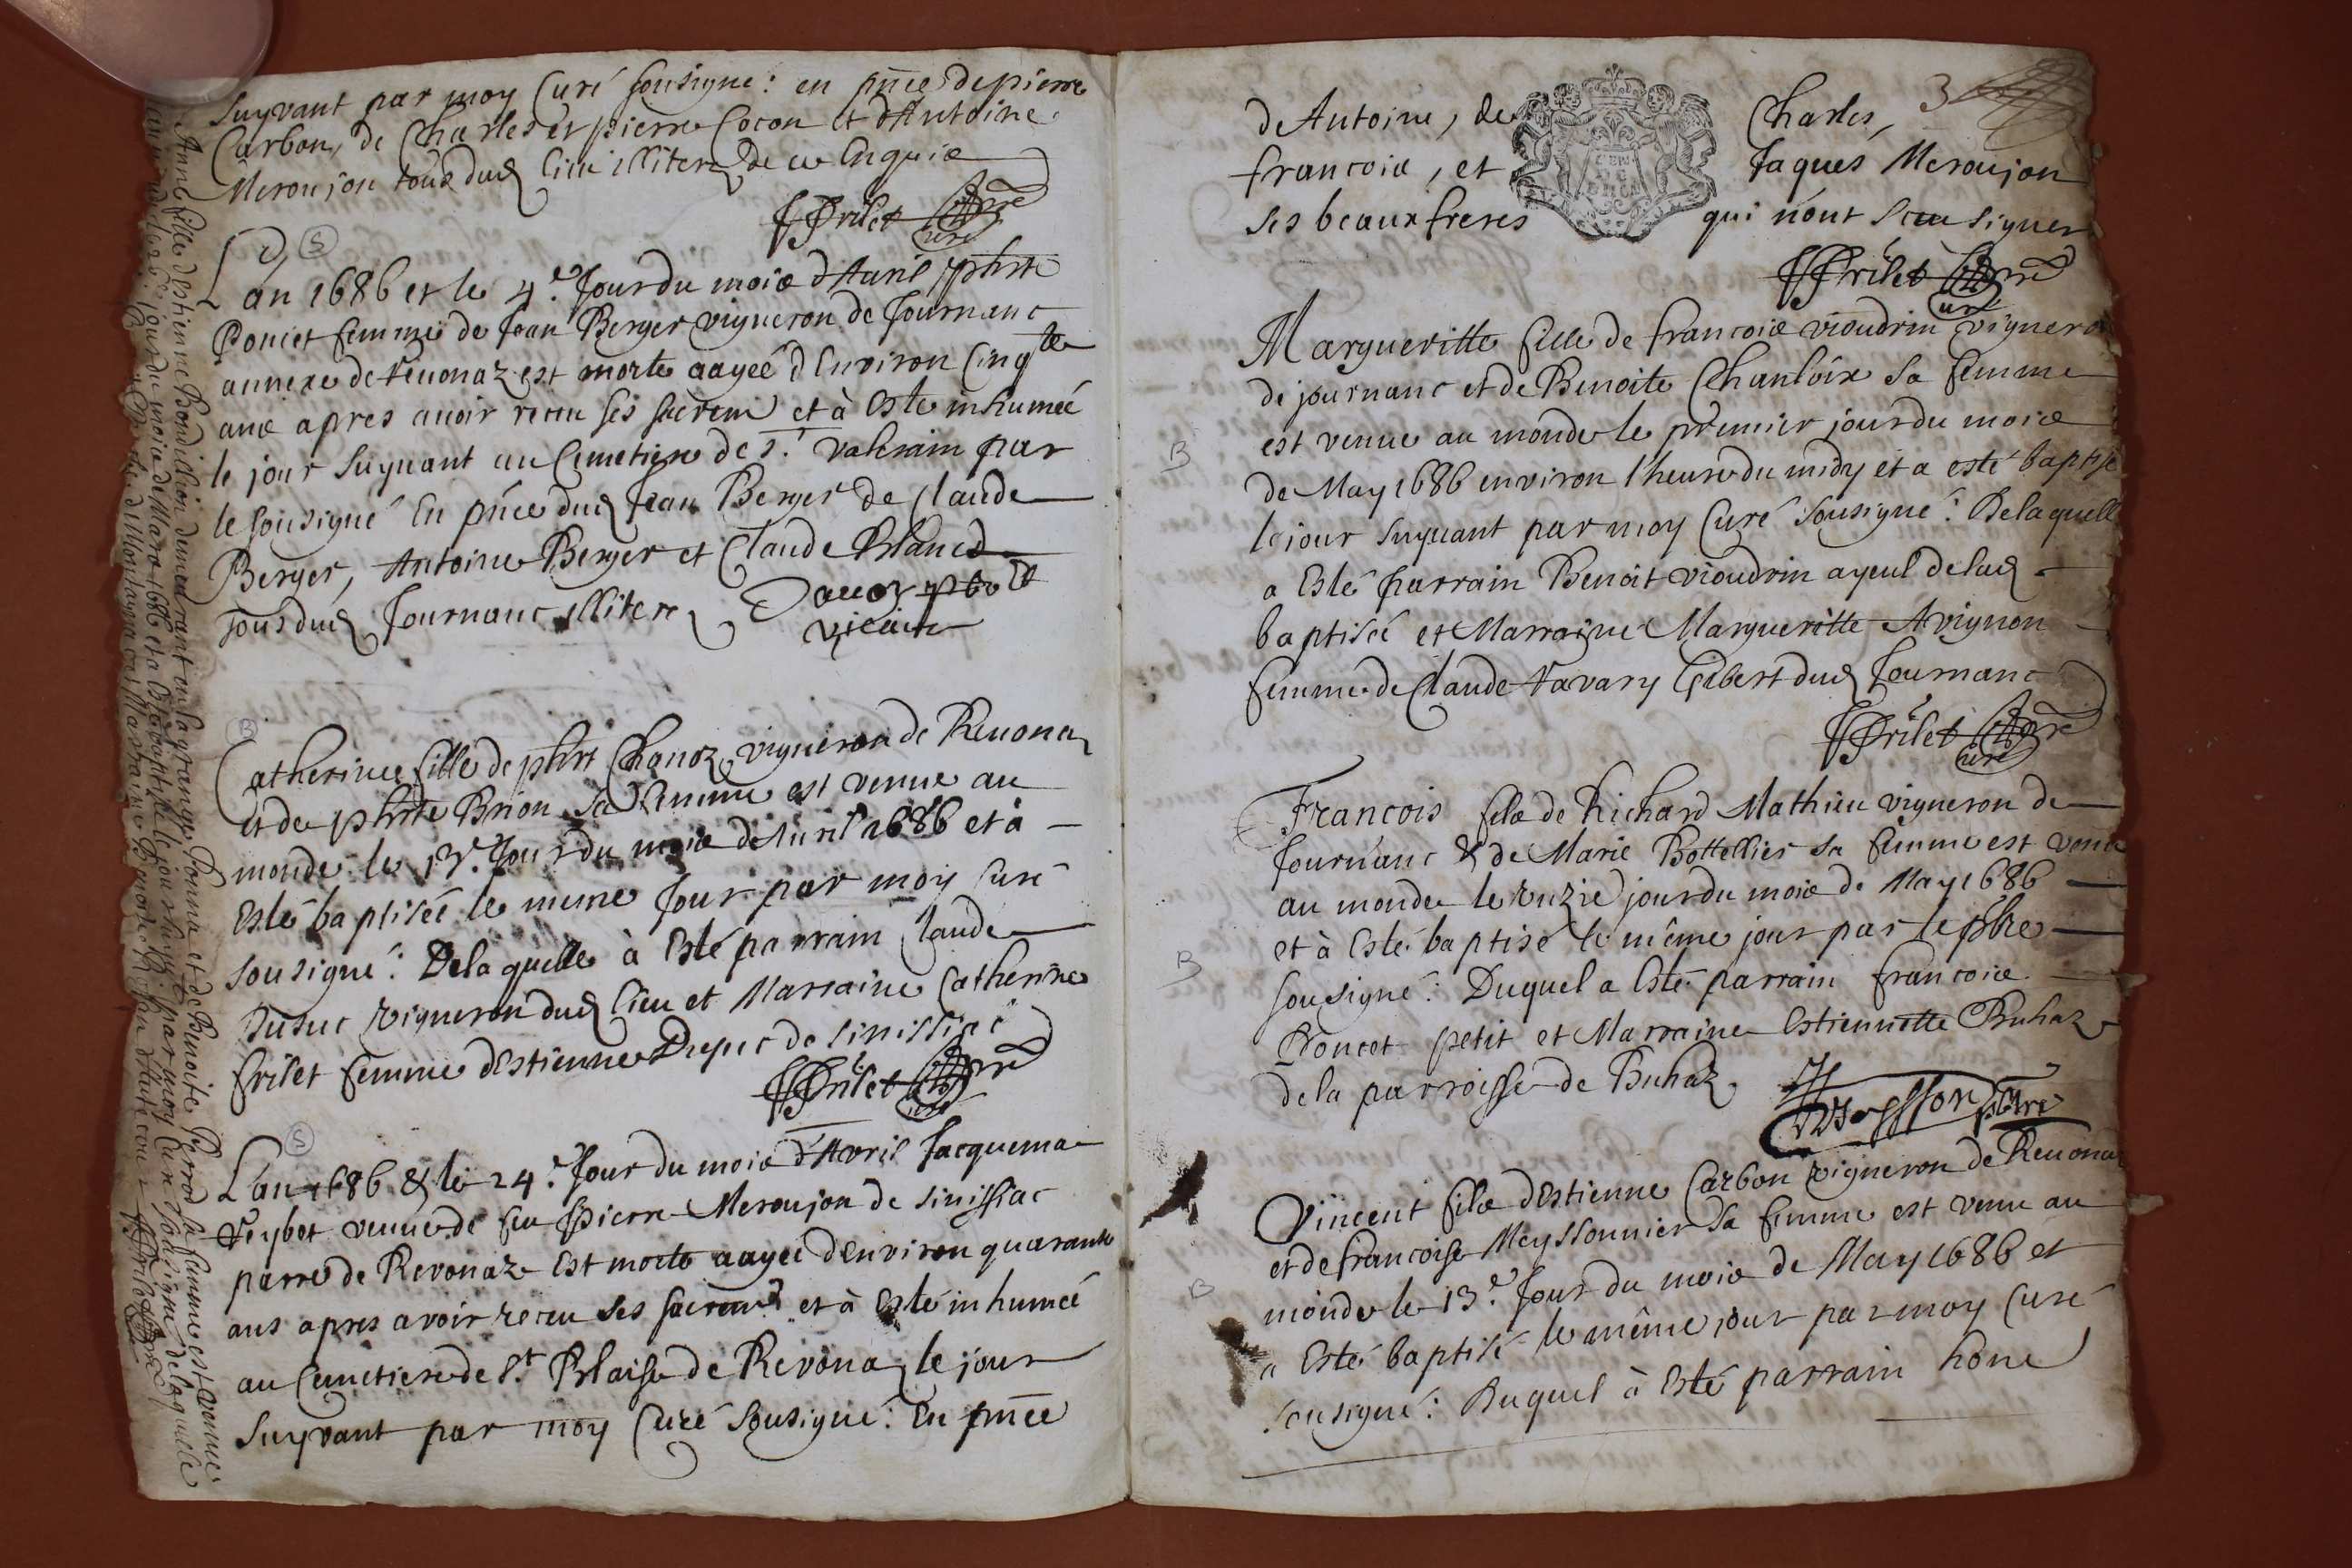 suyvant par moy Curé sousigné : en pñce de pierre
Carbon, de Charles et pierre Cocon et d'Antoine
Meroujon tous dud lieu illiterez de ce Enquis
FFrilet pre
Curé
S
L'an 1686 et le 4.e Jour du mois d'Auril phte
Poncet femme de Jean Berger vigneron de Journanc
annexe de Reuonaz est morte aagée d'Enuiron Cinqte
ans apres auoir receu ses sacrem et à esté inhumée
le jour suyuant au Cimetiere de St Valerain par
le sousigné En pñce dud Jean Berger de Claude
Berger, Antoine Berger et Claude Blanc
tous dud Journanc illiterez
vicaire
B
Catherine fille de phrt Chanoz vigneron de Reuona
et de phrte Brion sa femme est venue au
monde le 13.e Jour du mois d'Auril 1686 et à
esté baptisée le mesme Jour par moy Curé
sousigné : De laquelle à Esté parrain Claude
Dusuc vigneron dud lieu et Marraine Catherine
frilet femme d'Estienne Dupuc de Sinissiac
FFrilet pre
Curé
S
L'an 1686 & le 24.e Jour du mois d'Avril Jacquema
Veybet venue de feu Pierre Meroujon de Sinissiac
parre de Revonaz est morte aagée d'Environ quarante
ans apres avoir receu ses sacrem et à Esté inhumée
au Cimetiere de St Blaise de Revona le jour
suyvant par moy Curé sousigné : En pñce
Anne fille d'Estienne Bondillion demeurant en la grange Ponna et de Benoite Perrod sa femme est venue
jour du mois de Mars 1686 et a Esté baptisée le jour suyvant par moy Curé sousigné de laquelle
de Montagna et Marraine Benoite FFrilet pre
3
de Antoine, de Charles,
francois, et Jaques Meroujon
ses beaux freres qui n'ont sceu signer
FFrilet pre
Curé
Margueritte fille de francois vioudrin vigneron
de journanc et de Benoite Chanloix sa femme
B
est venue au monde le premier jour du mois
de May 1686 environ l'heure du midy et a esté baptisé
le jour suyuant par moy Curé sousigné : De laquelle
a Esté parrain Benoit vioudrin ayeul de lad
baptisée et Marraine Margueritte Avignon
femme de Claude Vavary Gibert dud Journanc
FFrilet pre
Curé
Francois fils de Richard Mathieu vigneron de
Journanc & de Marie Bottellier sa femme est venu
au monde le unzie jour du mois de May 1686
B
et à Esté baptisé le même jour par le pbre
sousigné : Duquel a Esté parrain francois
Poncet petit et Marraine Estiennette Buhaz
de la parroisse de Buhaz
pbre
Vincent fils d'Estienne Carbon vigneron de Reuona
et de francoise Meyssonnier sa femme est venu au
B
monde le 13.e Jour du mois de May 1686 et
a Esté baptisé le même jour par moy Curé
sousigné : Duquel à Esté parrain hone